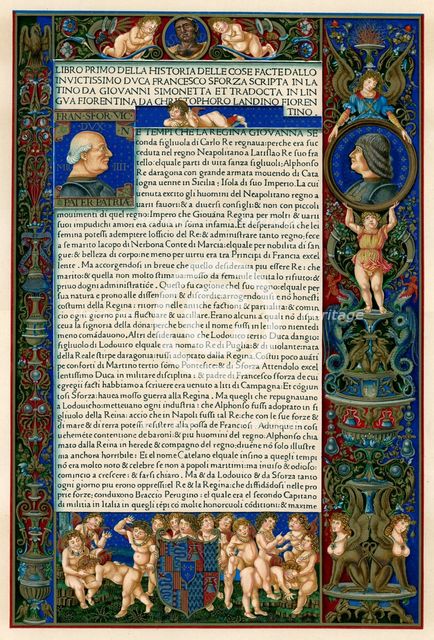 LIBRO PRIMO DELLA HISTORIA DELLE COSE FACTE DALLO
INVICTISSIMO DVCA FRANCESCO SFORZA SCRIPTA IN LA
TINO DA GIOVANNI SIMONETTA ET TRADOCTA IN LIN
GVA FIORENTINA DA CHRISTOPHORO LANDINO FIOREN
TINO.
FRAN·SFOR·VIC
DVX
PATER PATRIA
E TEMPI CHE LA REGINA GIOVANNA SE
conda figliuola di Carlo Re regnaua: perche era suc
ceduta nel regno Neapolitano a Latislao Re suo fra
tello: elquale parti di uita sanza figliuoli: Alphonso
Re daragona con grande armata mouendo di Cata
logna uenne in Sicilia: Isola di suo Imperio. La cui
uenuta excito gli huomini del Neapolitano regno a
uarii fauori: & a diuersi consigli: & non con piccoli
mouimenti di quel regno: Impero che Giouãna Regina per molti & uarii
suoi impudichi amori era caduta in soma infamia. Et desperandosi che lei
femina potessi adempiere lofficio del Re: & administrare tanto regno: fece
a se marito Iacopo di Nerbona Conte di Marcia: elquale per nobilita di sãg
ue: & belleza di corpo: ne meno per uirtu era tra Principi di Francia excel
lente. Ma accorgendosi in breue che quello desideraua piu essere Re: che
marito: & quella non molto stimaua: mosso da feminile leuita lo rifiuto: &
priuo dogni administratione. Questo fu cagione chel suo regno: elquale per
sua natura e prono alle dissensioni & discordie: arrogendouisi e nõ honesti
costumi della Regina: ritorno nelle antiche factioni & partialita: & comin
cio ogni giorno piu a fluctuare & uacillare. Erano alcuni a quali nõ dispia
ceua la signoria della dõna: perche benche il nome fussi in lei: loro nientedi
meno comãdauono. Altri desiderauano che Lodouico tertio Duca dangio:
figliuolo di Lodouico elquale era nomato Re di Puglia: & di uiolante nata
della Reale stirpe daragonia: fussi adoptato dalla Regina. Costui poco auãti
pe conforti di Martino tertio sommo Pontefice: & di Sforza Attendolo excel
lentissimo Duca in militare disciplina: & padre di Francesco sforza de cui
egregii facti habbiamo a scriuere era uenuto a liti di Campagna: Et cõgiun
tosi Sforza: hauea mosso guerra alla Regina. Ma quegli che repugnauano
a Lodouico: metteuano ogni industria: che Alphonso fussi adoptato in fi
gliuolo della Reina: accio che in Napoli fussi tal Re: che con le sue forze &
di mare & di terra potessi resistere alla possa de Franciosi. Adunque in cosi
uehemente contentione de baroni: & piu huomini del regno: Alphonso chia
mato dalla Reina in herede & compagno del regno: diuene nõ solo illustre:
ma anchora horribile: Et el nome Catelano elquale insino a quegli tempi
nõ era molto noto & celebre se non a popoli maritimi: ma inuiso & odioso:
comincio a crescere: & farsi chiaro. Ma & da Lodouico & da Sforza tanto
ogni giorno piu erono oppressi el Re & la Regina: che diffidãdosi nelle pro
prie forze: conduxono Braccio Perugino: el quale era el secondo Capitano
di militia in Italia in quegli tẽpi: cõ molte honoreuoli cõditioni: & maxime